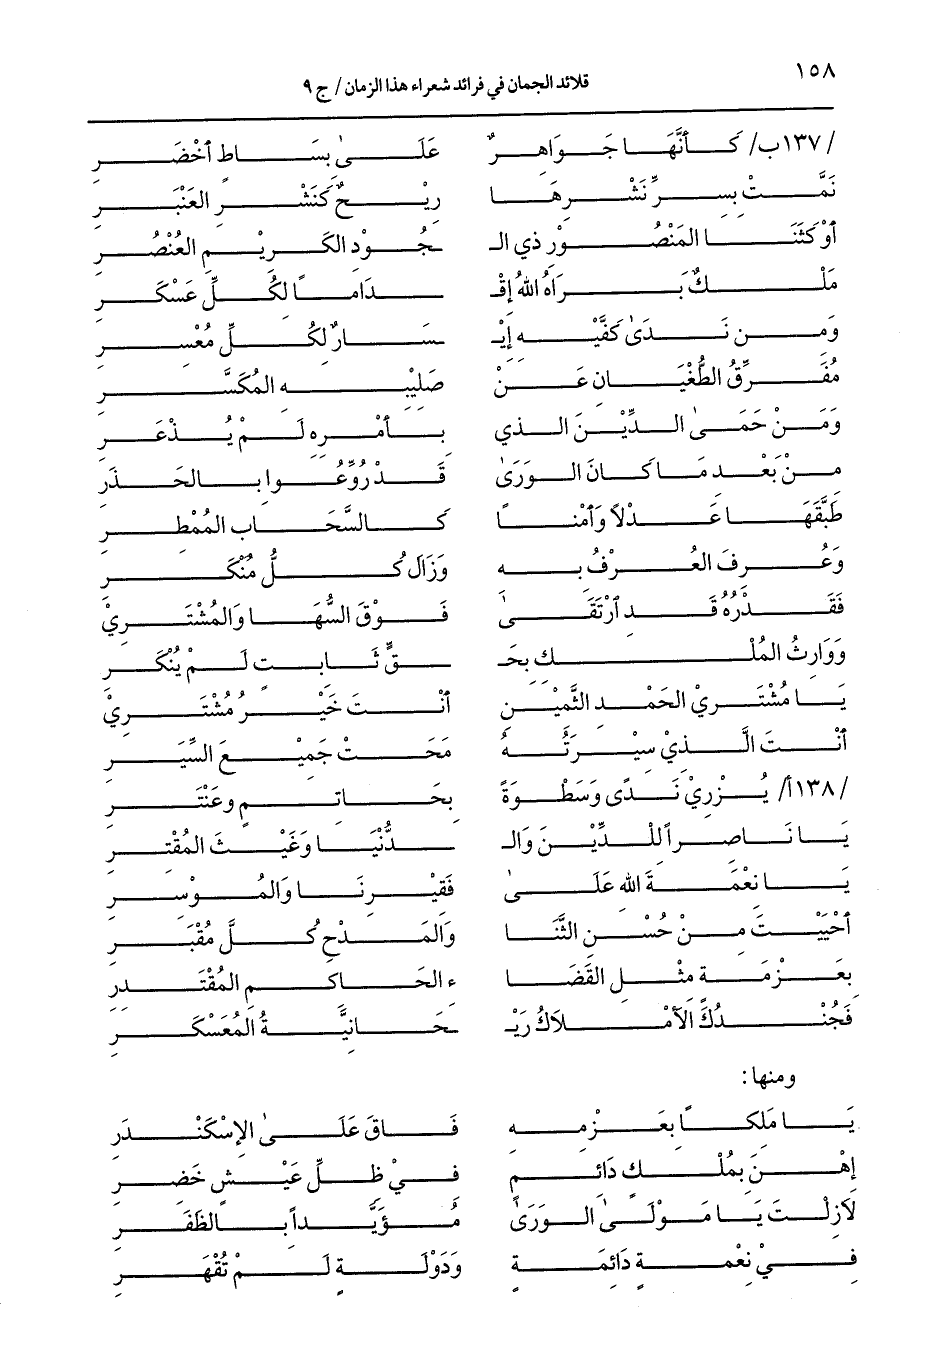 ١٥٨
قلائد الجمان في فرائد شعراء هذا الزمان/ ج ٩
/١٣٧ب/ كَأَنَّهَا جَوَاهِرٌ عَلَىٰ بِسَاطٍ أَخْضَرِ
نَمَّتْ بِسِرِّ نَشْرِهَا رِيْحٌ كَنَشْرِ العَنْبَرِ
أَوْ كَثَنَا المَنْصُوْرِ ذي الـ ـجُوْدِ الكَرِيْمِ العُنْصُرِ
مَلْكٌ بَرَاهُ اللهُ إِقْـ ـدَاماً لِكُلِّ عَسْكَرِ
وَمِن نَدَىٰ كَفَّيْهِ إِيْـ ـسَارٌ لِكُلِّ مُعْسِرِ
مُفَرِّقُ الطُّغْيَانِ عَنْ صَلِيْبِهِ المُكَسَّرِ
وَمَنْ حَمَىٰ الدِّيْنَ الذي بِأَمْرِهِ لَمْ يُذْعَرِ
مِنْ بَعْدِ مَا كَانَ الوَرَىٰ قَدْ رُوِّعُوا بِالحَذَرِ
طَبَّقَهَا عَدْلاً وَأَمْناً كَالسَّحَابِ المُمْطِرِ
وَعُرِفَ العُرْفُ بِهِ وَزَالَ كُلُّ مُنْكَرِ
فَقَدْرُهُ قَدِ ارْتَقَىٰ فَوْقَ السُّهَا وَالمُشْتَرِيْ
وَوَارِثُ المُلْكِ بِحَـ ـقٍّ ثَابِتٍ لَمْ يُنْكَرِ
يَا مُشْتَرِيْ الحَمْدِ الثَّمِيْنِ أَنْتَ خَيْرُ مُشْتَرِيْ
أَنْتَ الَّذِيْ سِيْرَتُهُ مَحَتْ جَمِيْعَ السِّيَرِ
/١٣٨أ/ يُزْرِيْ نَدًى وَسَطْوَةً بِحَاتِمٍ وعَنْتَرِ
يَا نَاصِراً لِلْدِّيْنِ وَالـ ـدُّنْيَا وَغَيْثَ المُقْتِرِ
يَا نِعْمَةَ اللهِ عَلَىٰ فَقِيْرِنَا وَالمُوْسِرِ
أَحْيَيْتَ مِنْ حُسْنِ الثَّنَا وَالمَدْحِ كُلَّ مُقْبَرِ
بِعَزْمَةٍ مِثْلِ القَضَا ءِ الحَاكِمِ المُقْتَدِرِ
فَجُنْدُكَ الأَمْلاكُ رَيْـ ـحَانِيَّةُ المُعَسْكَرِ
ومنها:
يَا مَلِكاً بِعَزْمِهِ فَاقَ عَلَىٰ الإِسْكَنْدَرِ
إِهْنَ بِمُلْكٍ دَائِمٍ فِيْ ظِلِّ عَيْشٍ خَضِرِ
لاَزِلْتَ يَا مَوْلَىٰ الوَرَىٰ مُؤَيَّداً بِالظَفَرِ
فِيْ نِعْمِةٍ دَائِمَةٍ وَدَوْلَةٍ لَمْ تُقْهَرِ